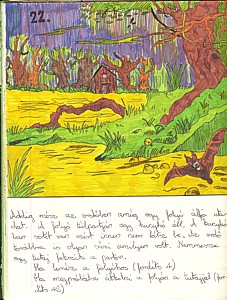 22.
Addig mész az erdőben amíg egy folyó állja uta-
dat. A folyó túlpartján egy kunyhó áll. A kunyhó-
ban sötét van ezért innen nem látsz be. Az erdő
továbbra is olyan sűrű amilyen volt. Nemmessze
egy tutaj fekszik a parton.
Ha lemész a folyóhoz (fordíts 4)
Ha megpróbálsz átkelni a folyón a tutajjal (for-
díts 42)